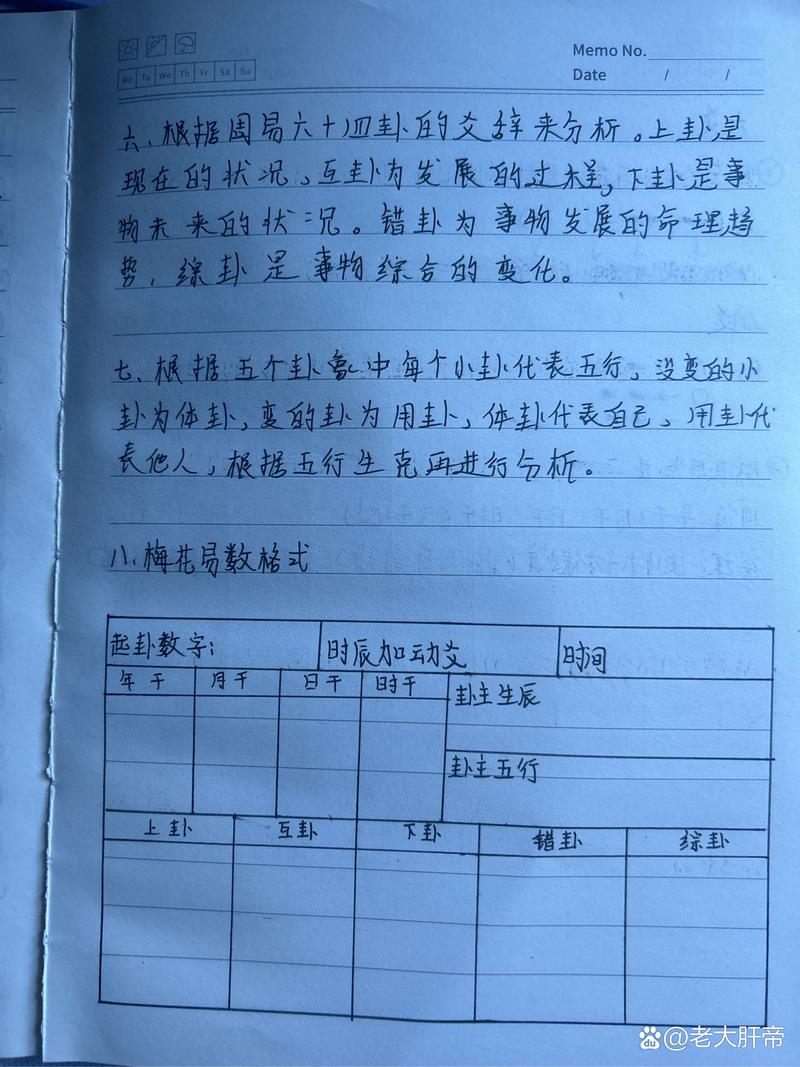 Memo No.
Mo Tu We Th Fr Sa Su
Date / /
六、根据周易六十四卦的爻辞来分析。上卦是
现在的状况、互卦为发展的过程,下卦是事
物未来的状况。错卦为事物发展的命理趋
势,综卦是事物综合的变化。
七、根据五个卦象中每个小卦代表五行,没变的小
卦为体卦,变的卦为用卦,体卦代表自己,用卦代
表他人,根据五行生克再进行分析。
八、梅花易数格式
起卦数字: 时辰加动爻 时间
年干 月干 日干 时干 卦主生辰
卦主五行
上卦 互卦 下卦 错卦 综卦
du @老大肝帝